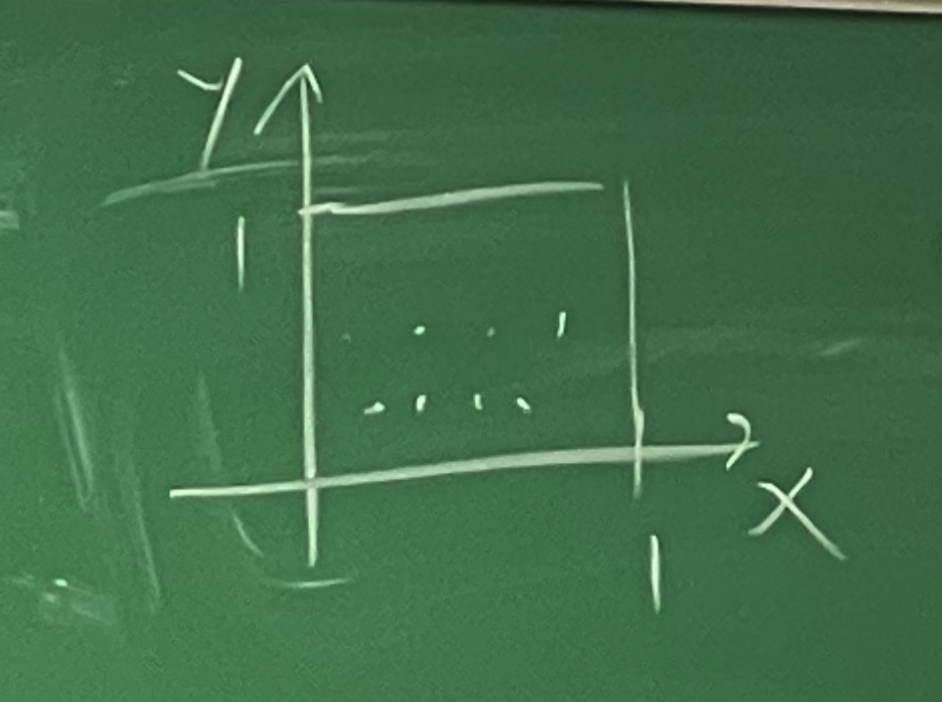 y
1
x
1